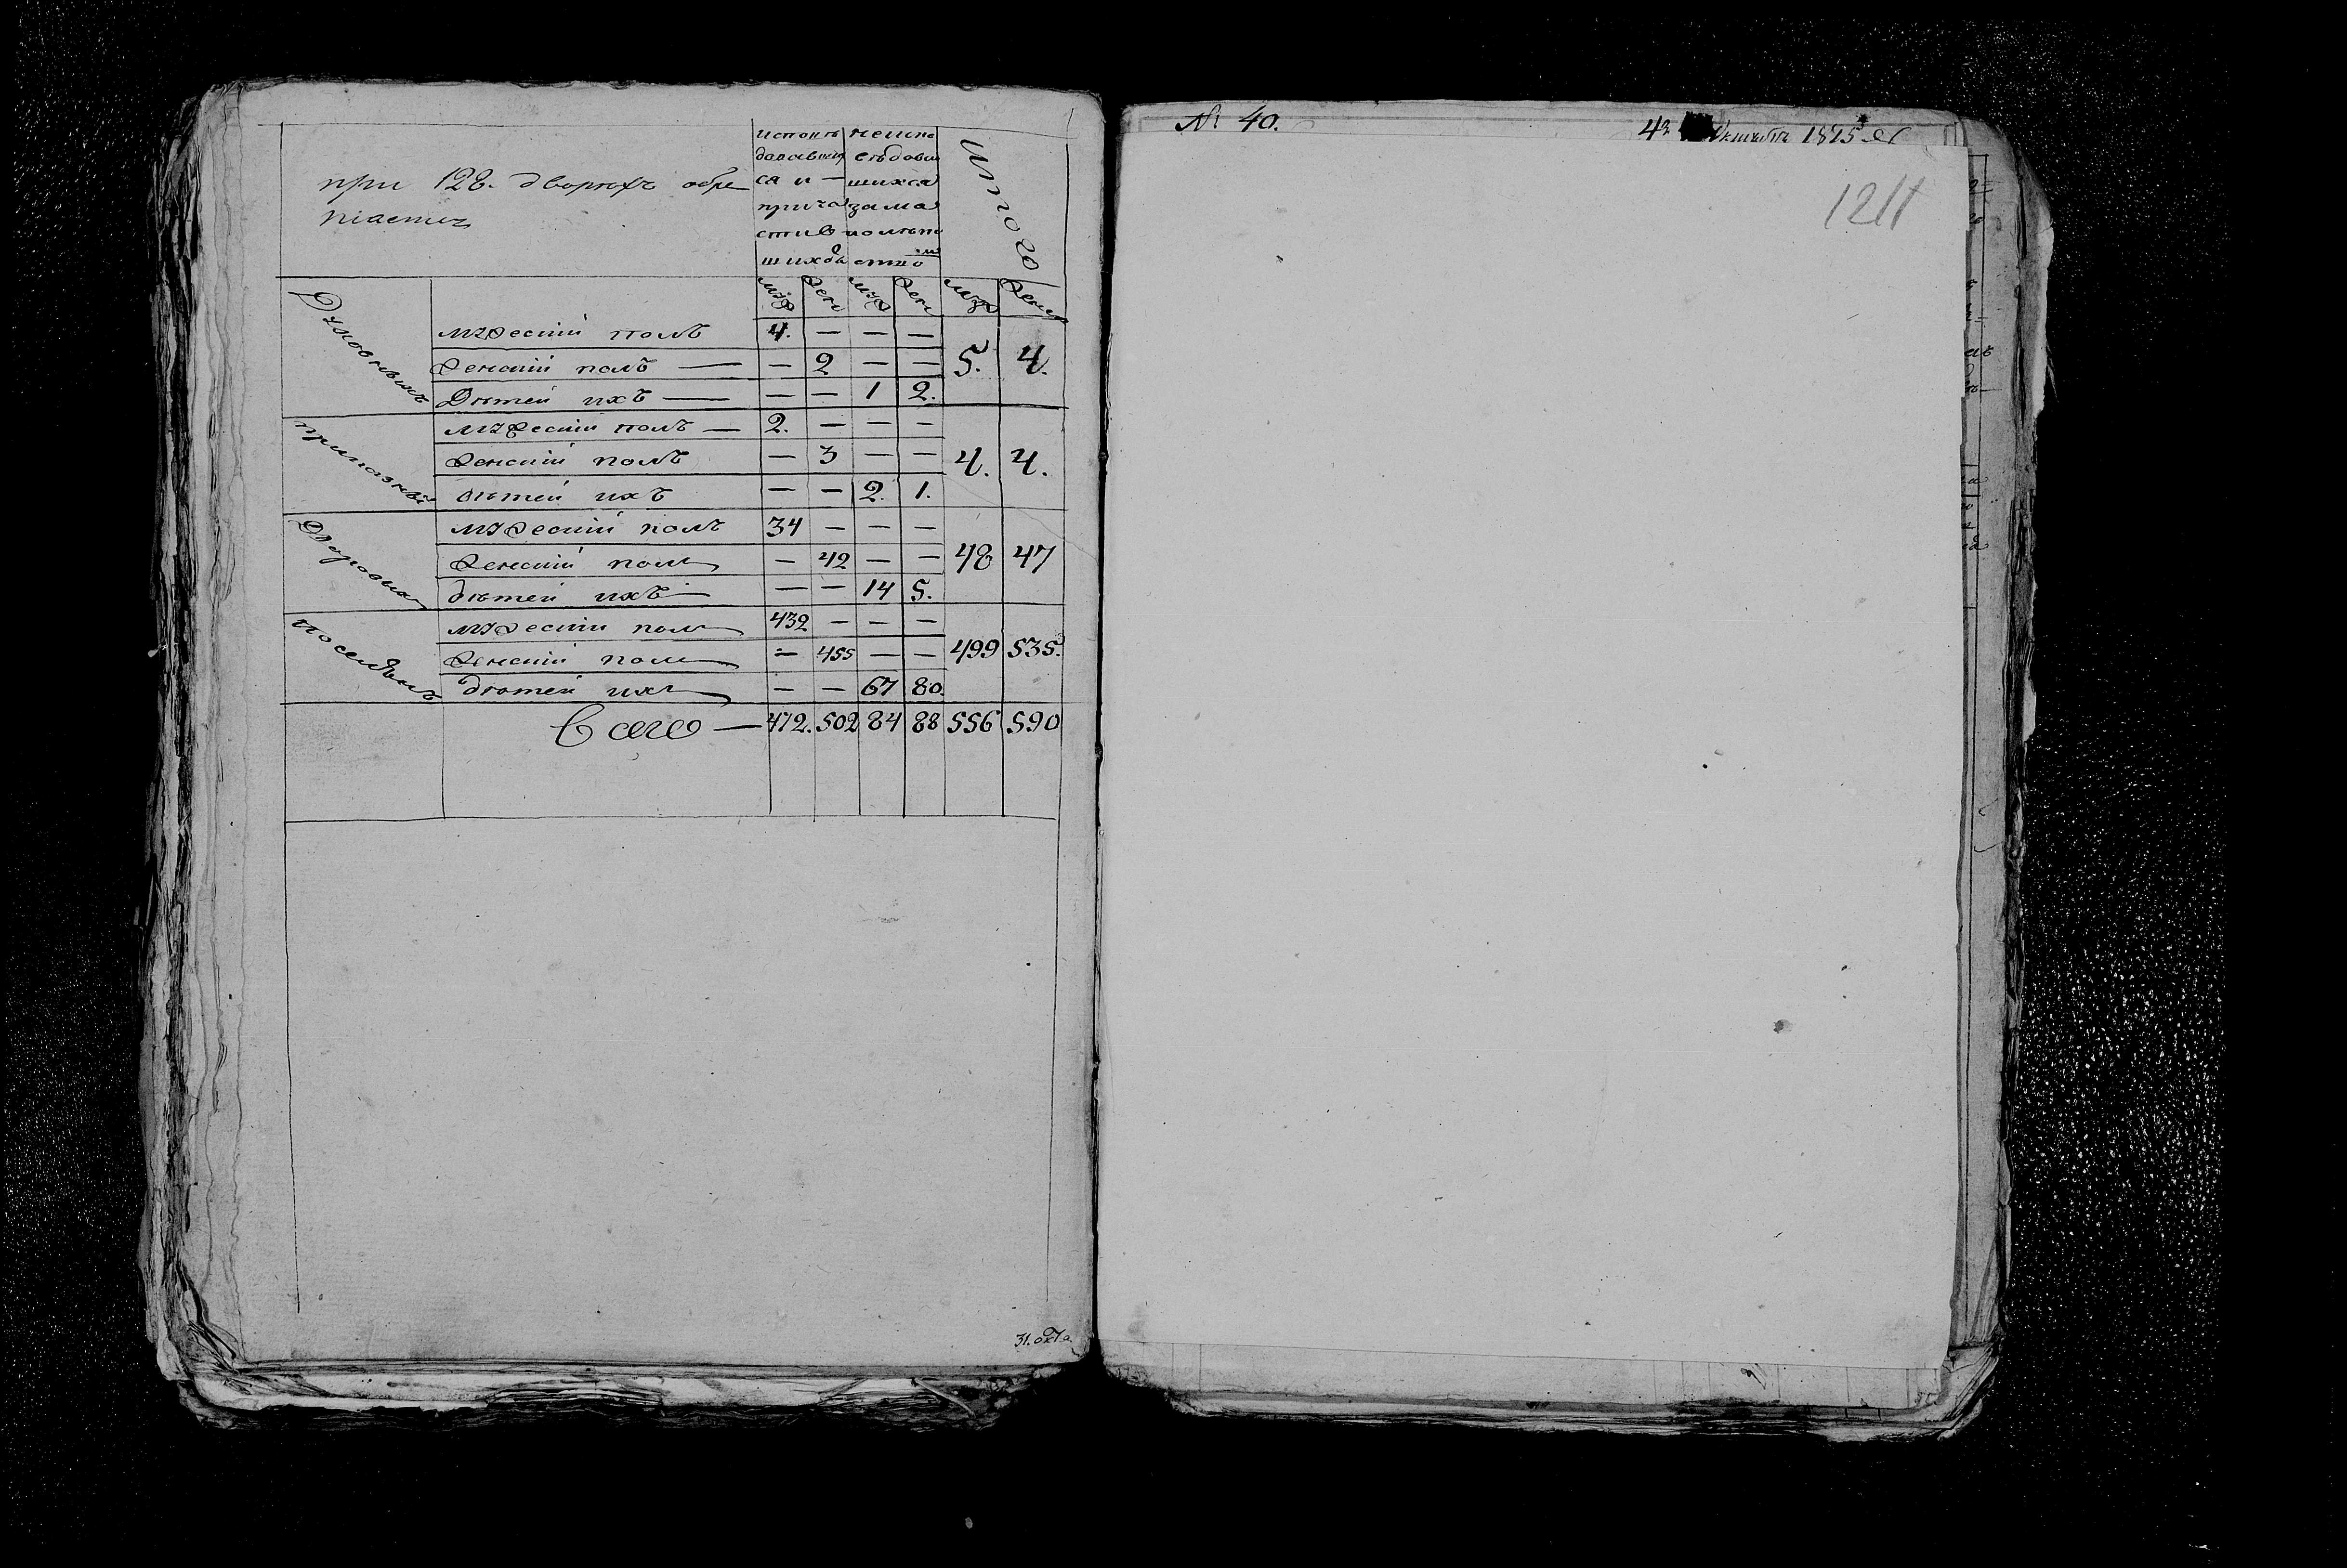 при 128. дворахъ обре
тается
испов
давших
ся и —
прича
стив
шихся
неиспо
ведовав
шихся
зама
лолет
ство
итого
муж жен муж жен муж жен
Духовныхъ
мужескiй полъ 4. — — —
женскiй полъ — — 2 — —
Детей ихъ — — — 1 2.
5. 4.
приказныхъ
мужескiй полъ — 2. — — —
женскiй полъ — 3 — —
детей ихъ — — 2. 1.
4. 4.
Дворовыхъ
мужескiй полъ 34 — — —
женскiй полъ — 42 — —
детей ихъ — — 14 5.
48 47
поселянъ
мужескiй полъ 432 — — —
женскiй полъ — 455 — —
детей ихъ — — 67 80.
499 535.
Всего — 472. 502 84 88 556 590
№ 40.
1211